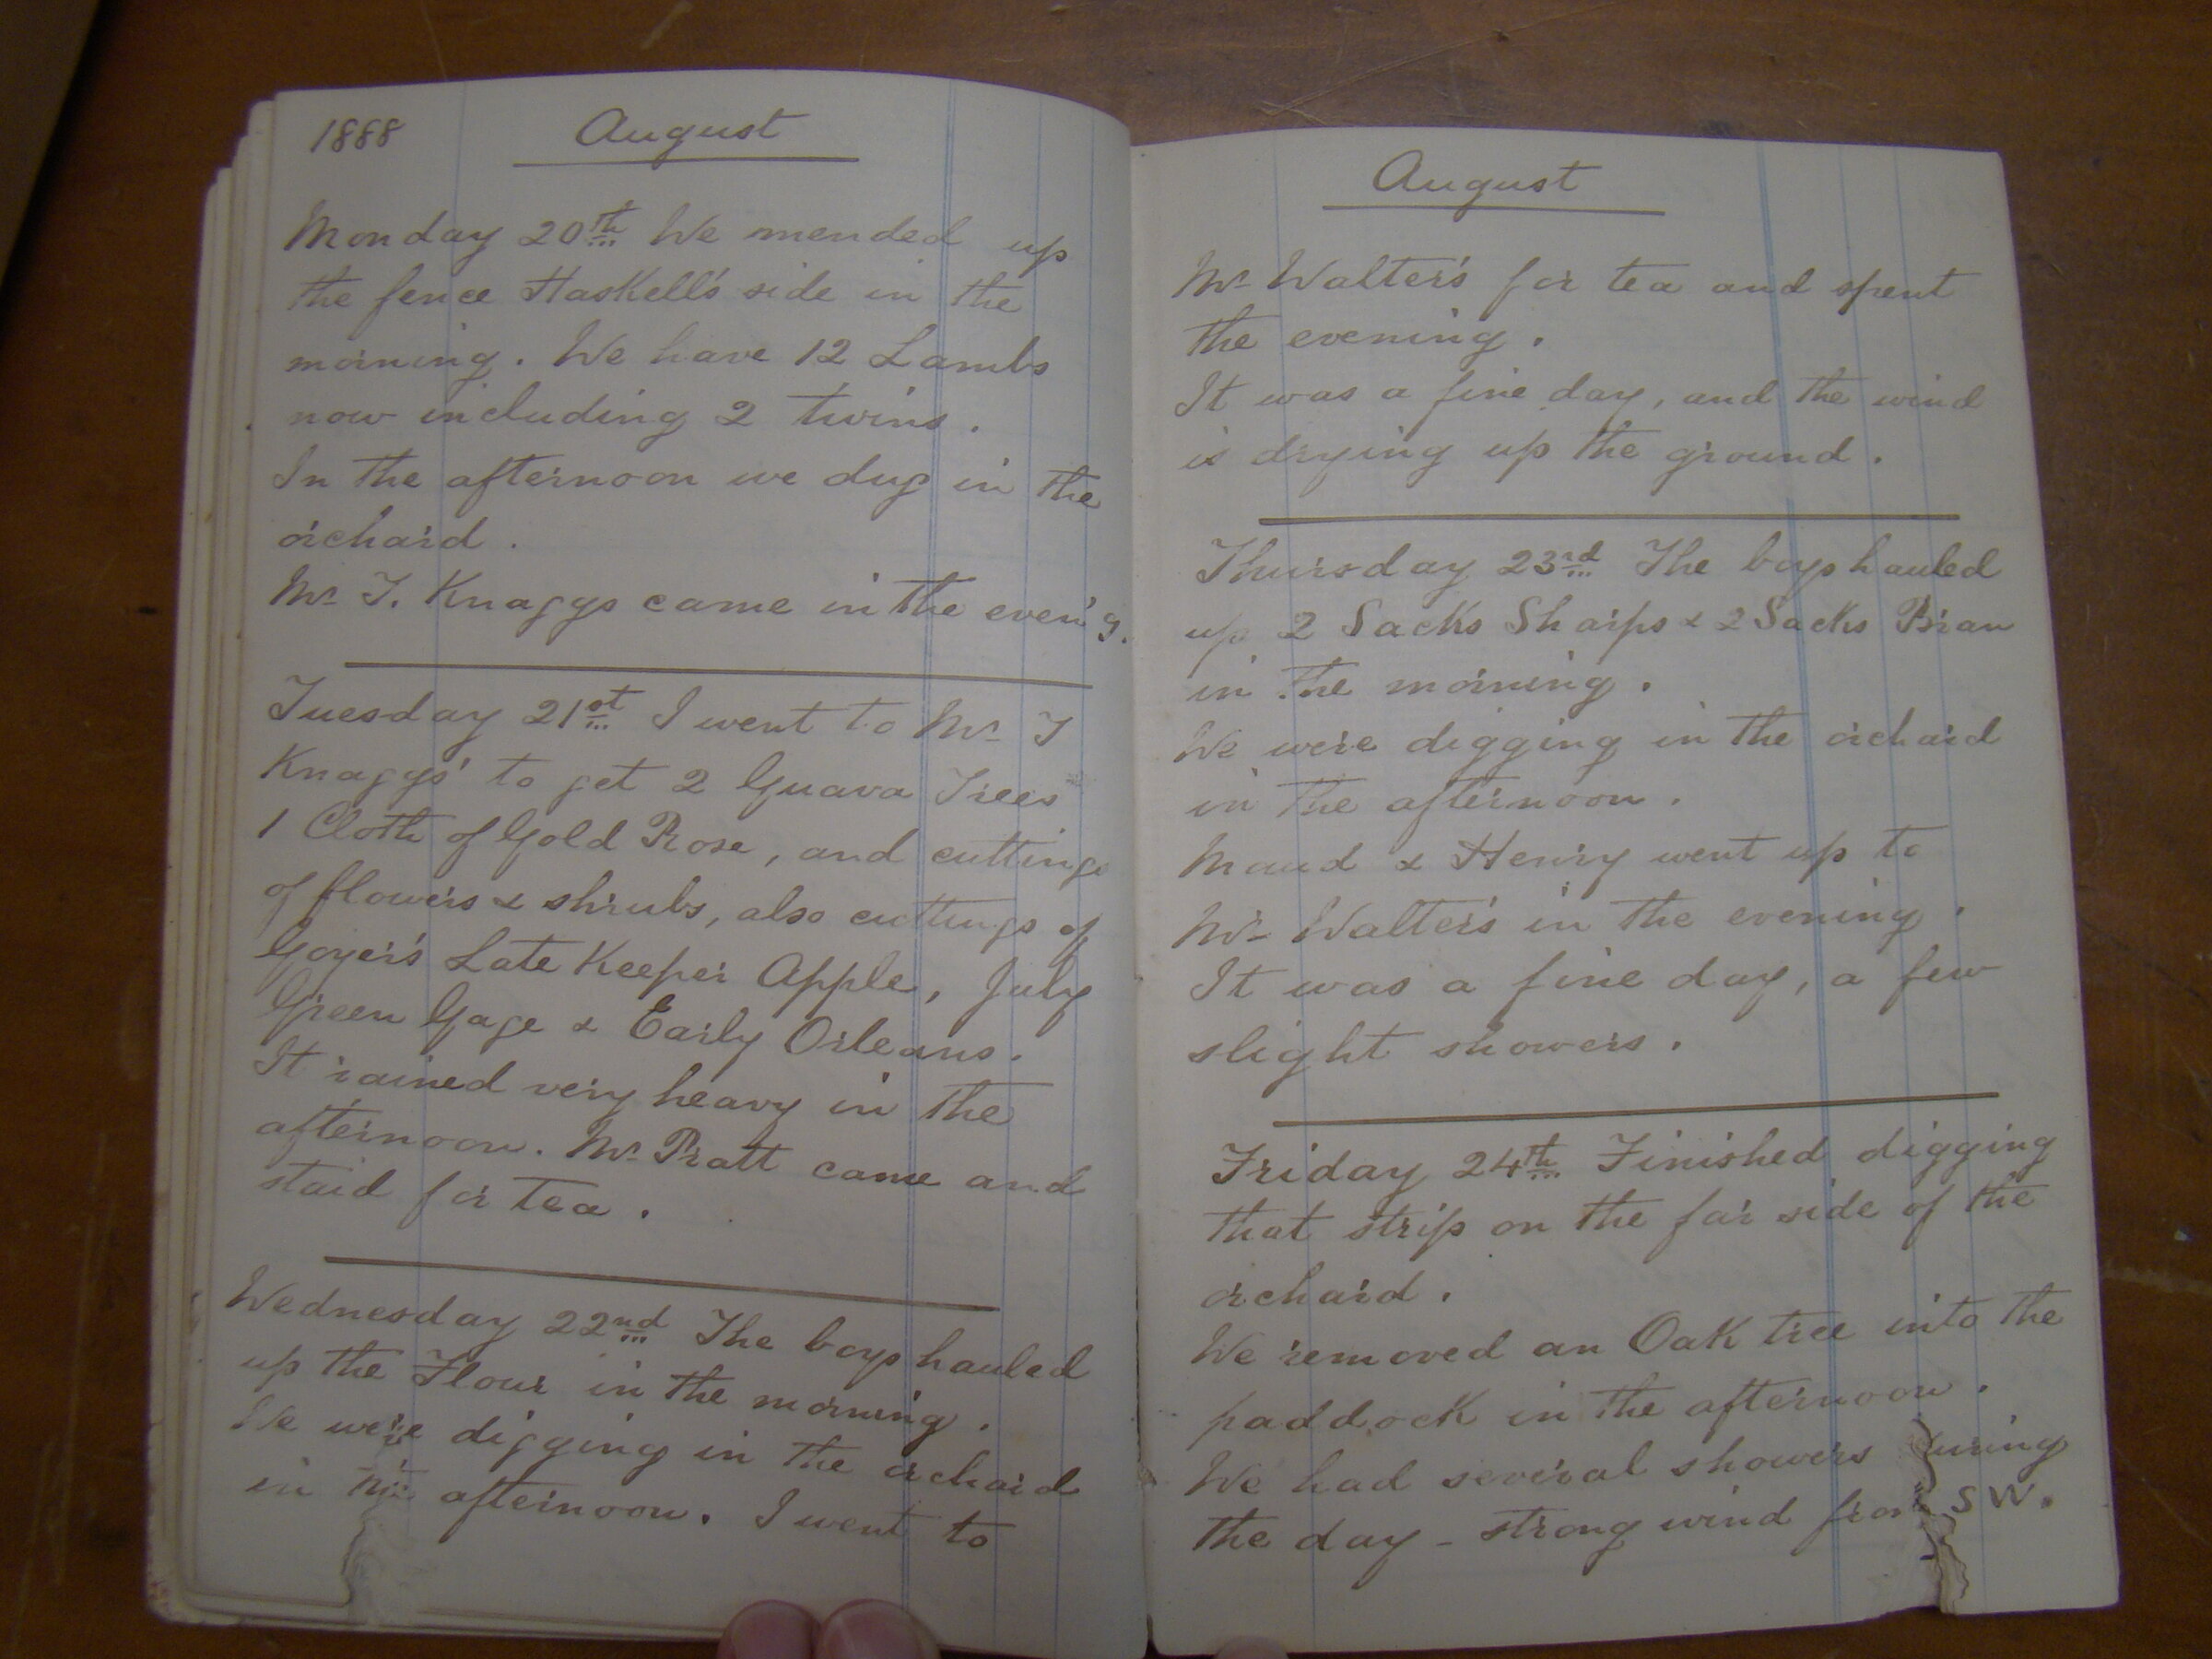 1888 August
Monday 20th We mended up
the fence Haskell's side in the
morning. We have 12 Lambs
now including 2 twins.
In the afternoon we dug in the
orchard.
Mr T. Knaggs came in the even'g.
Tuesday 21st I went to Mr T
Knaggs' to get 2 Guava Trees
1 Cloth of Gold Rose, and cuttings
of flowers & shrubs, also cuttings of
Goyer's Late Keeper Apple, July
Green Gage & Early Orleans.
It rained very heavy in the
afternoon. Mr Pratt came and
staid for tea.
Wednesday 22nd The boys hauled
up the Flour in the morning.
We were digging in the orchard
in the afternoon. I went to
August
Mr Walter's for tea and spent
the evening.
It was a fine day, and the wind
is drying up the ground.
Thursday 23rd The boys hauled
up 2 Sacks Sharps & 2 Sacks Bran
in the morning.
We were digging in the orchard
in the afternoon.
Maud & Henry went up to
Mr Walter's in the evening.
It was a fine day, a few
slight showers.
Friday 24th Finished digging
that strip on the far side of the
orchard.
We removed an Oak tree into the
paddock in the afternoon.
We had several showers during
the day - strong wind from SW.